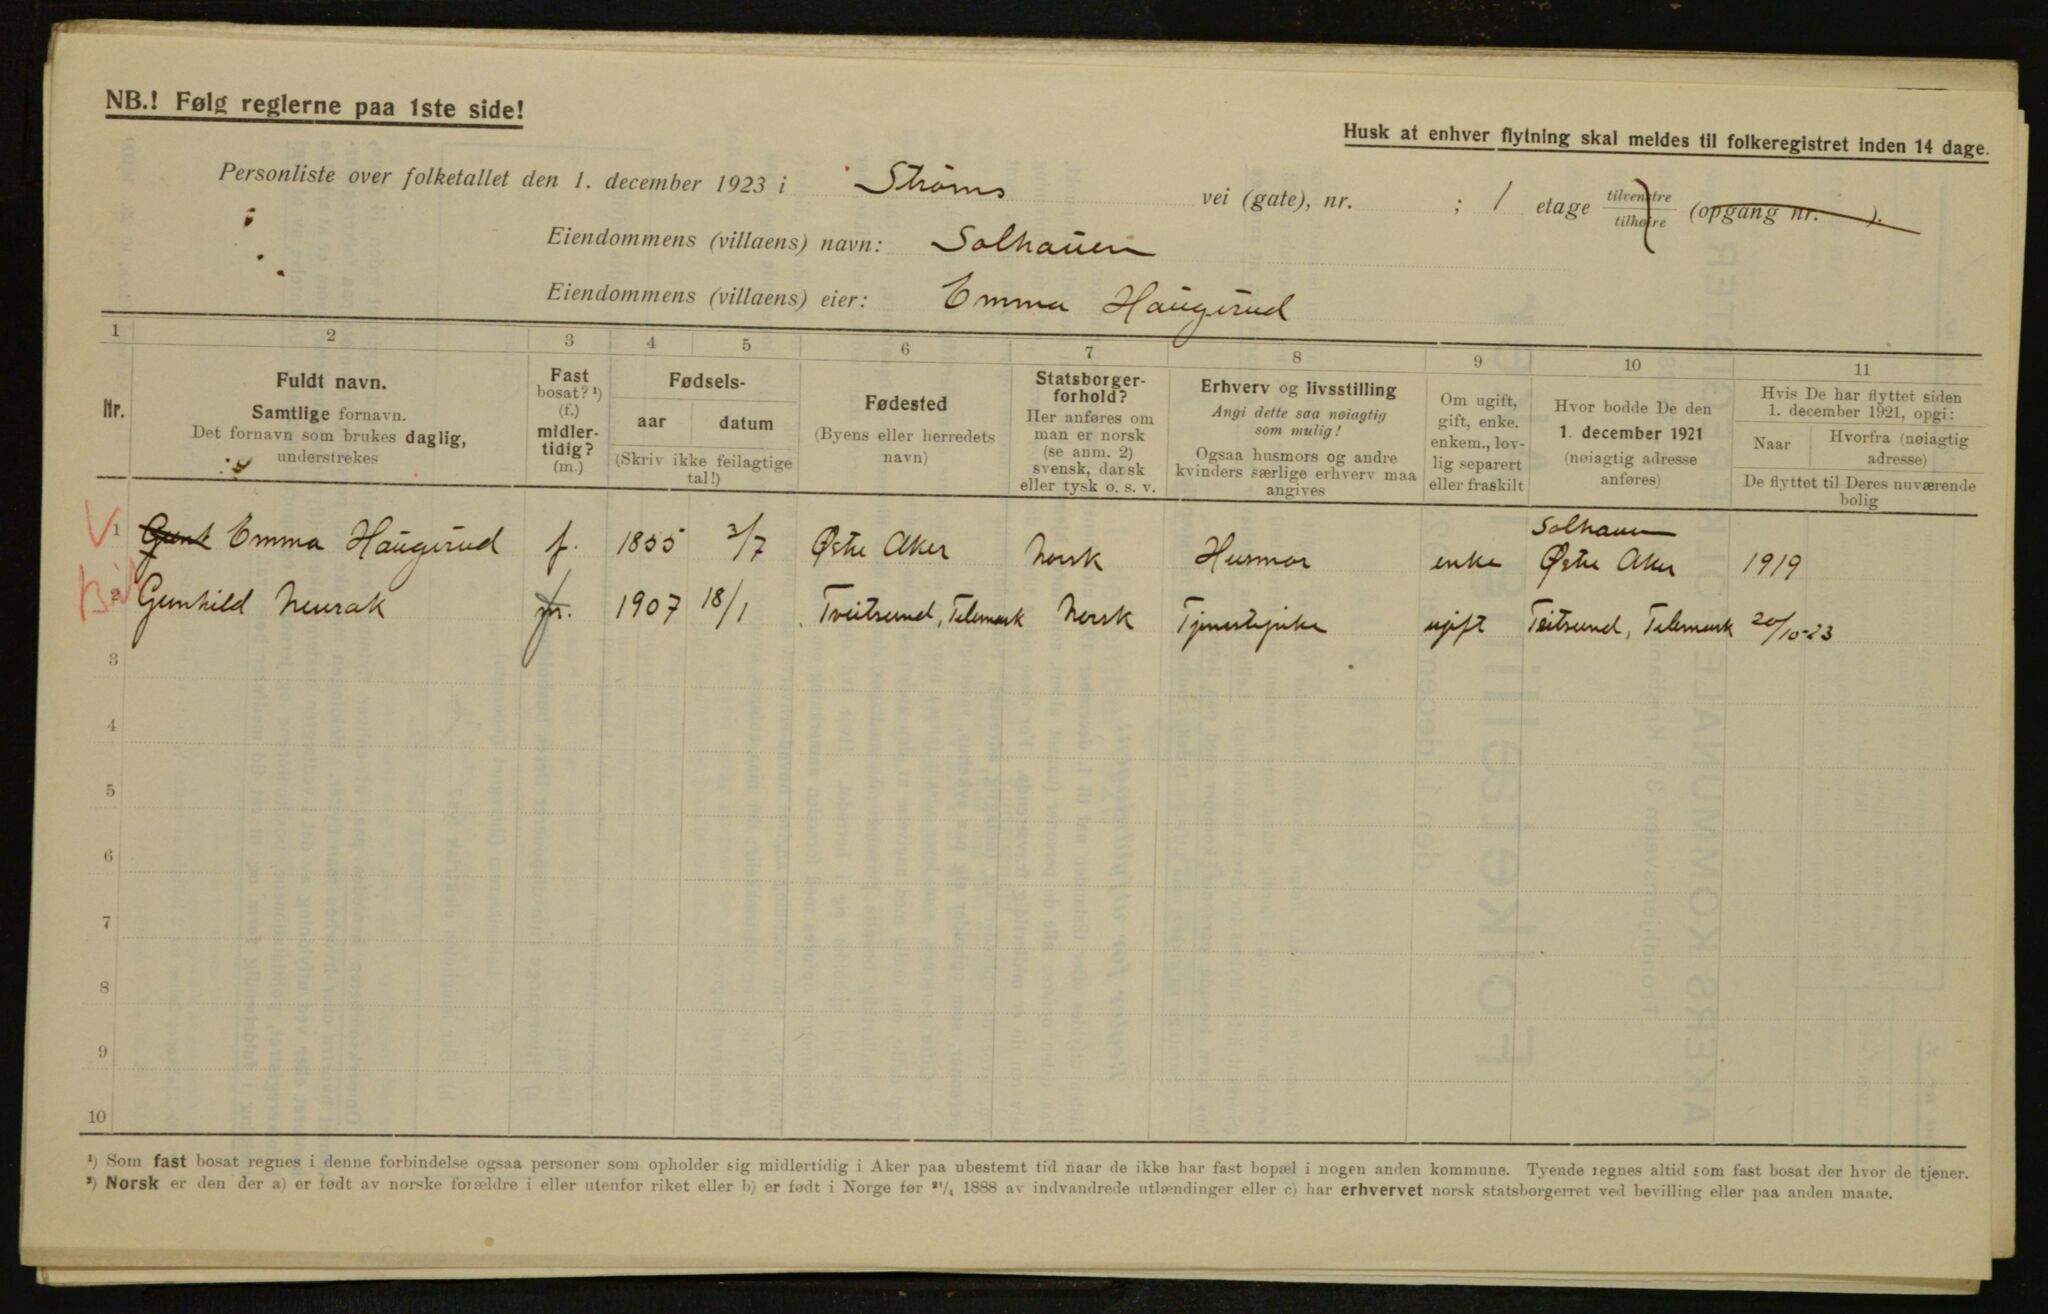 NB.! Følg reglerne paa 1ste side!
Husk at enhver flytning skal meldes til folkeregistret inden 14 dage.
Personliste over folketallet den 1. december 1923 i Strøms vei (gate), nr. ; 1 etage tilvenstre tilhøire (opgang nr. ).
Eiendommens (villaens) navn: Solhauen
Eiendommens (villaens) eier: Emma Haugerud
1 2 3 4 5 6 7 8 9 10 11
Nr.
Fuldt navn.
Samtlige fornavn.
Det fornavn som brukes daglig,
understrekes
Fast
bosat? ¹)
(f.)
midler-
tidig?
(m.)
Fødsels-
aar datum
(Skriv ikke feilagtige
tal!)
Fødested
(Byens eller herredets
navn)
Statsborger-
forhold?
Her anføres om
man er norsk
(se anm. 2)
svensk, dansk
eller tysk o. s. v.
Erhverv og livsstilling
Angi dette saa nøiagtig
som mulig!
Ogsaa husmors og andre
kvinders særlige erhverv maa
angives
Om ugift,
gift, enke.
enkem., lov-
lig separert
eller fraskilt
Hvor bodde De den
1. december 1921
(nøiagtig adresse
anføres)
Hvis De har flyttet siden
1. december 1921, opgi:
Naar
Hvorfra (nøiagtig
adresse)
De flyttet til Deres nuværende
bolig
Solhauen
1 Emma Haugerud f. 1855 3/7 Østre Aker Norsk Husmor enke Østre Aker 1919
2 Gunhild Neurak 1907 18/1 Tveitsund, Telemark Norsk Tjenestepike ugift Teitsund, Telemark 20/10-23
3
4
5
6
7
8
9
10
¹) Som fast bosat regnes i denne forbindelse ogsaa personer som opholder sig midlertidig i Aker paa ubestemt tid naar de ikke har fast bopæl i nogen anden kommune. Tyende regnes altid som fast bosat der hvor de tjener.
²) Norsk er den der a) er født av norske forældre i eller utenfor riket eller b) er født i Norge før 21/4 1888 av indvandrede utlændinger eller c) har erhvervet norsk statsborgerret ved bevilling eller paa anden maate.